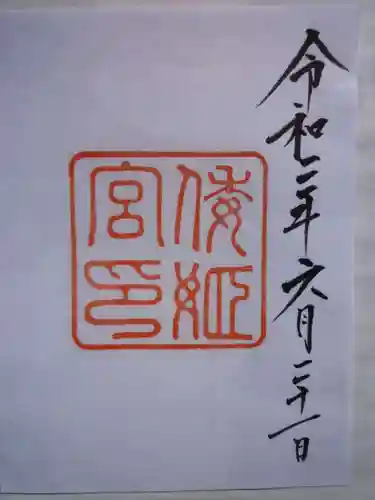 令和二年六月二十一日
倭姫
宮印